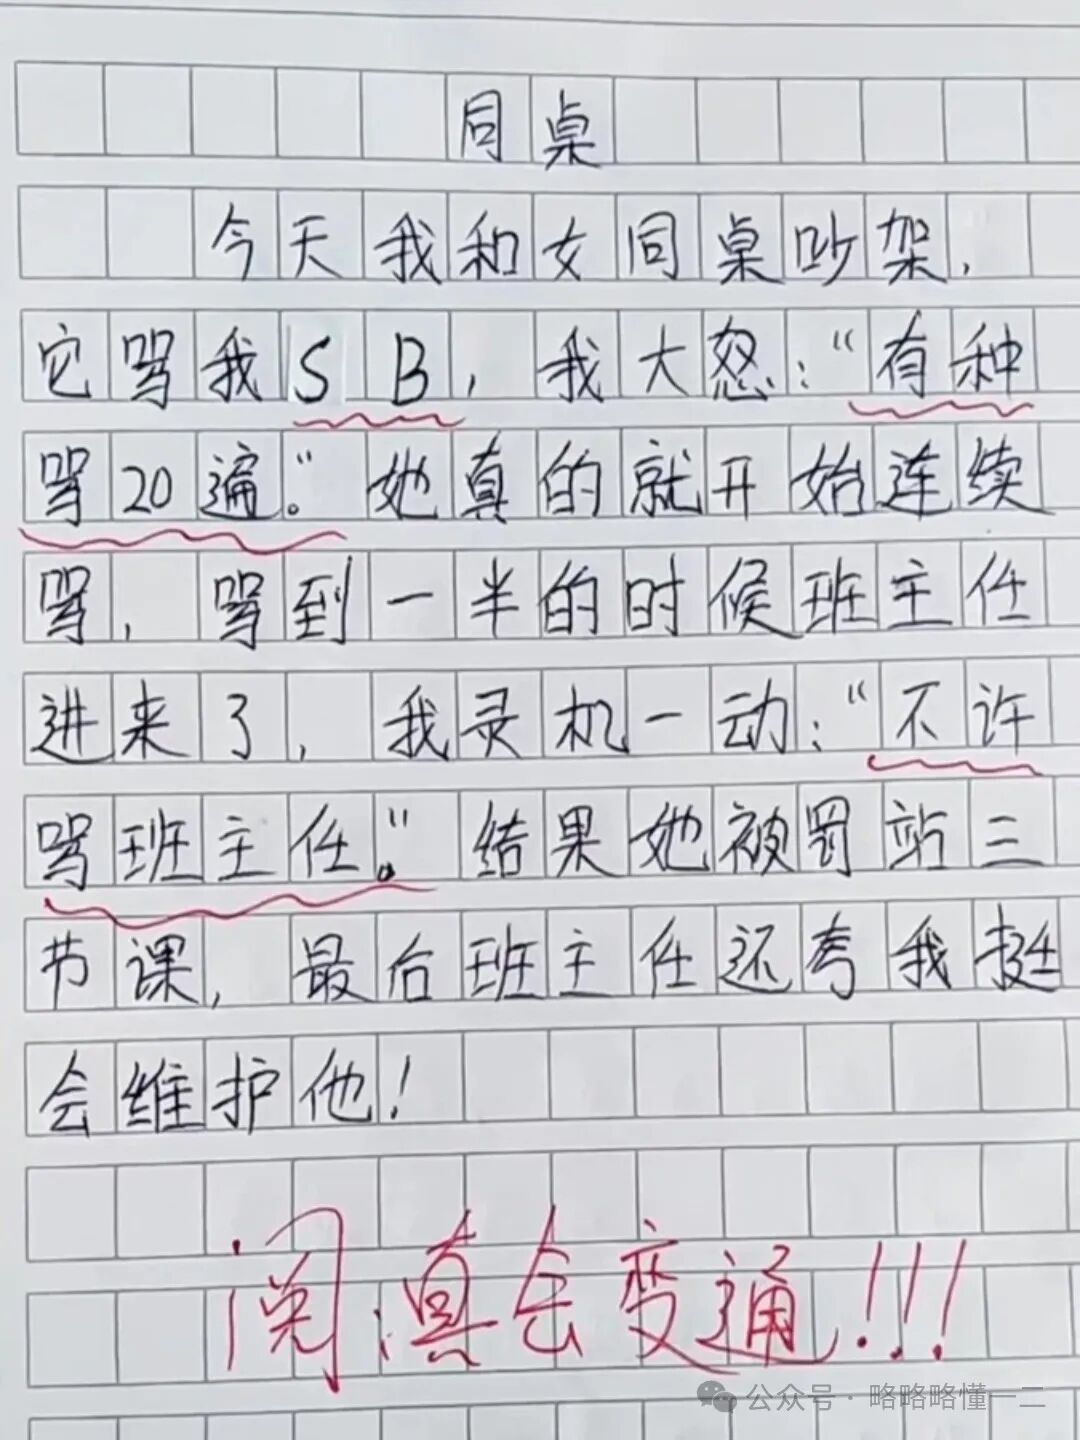 同桌
今天我和女同桌吵架，
它骂我SB，我大怒：“有种
骂20遍。”她真的就开始连续
骂，骂到一半的时候班主任
进来了，我灵机一动：“不许
骂班主任。”结果她被罚站三
节课，最后班主任还夸我挺
会维护他！
阅：真会变通！！！
公众号·略略略懂一二